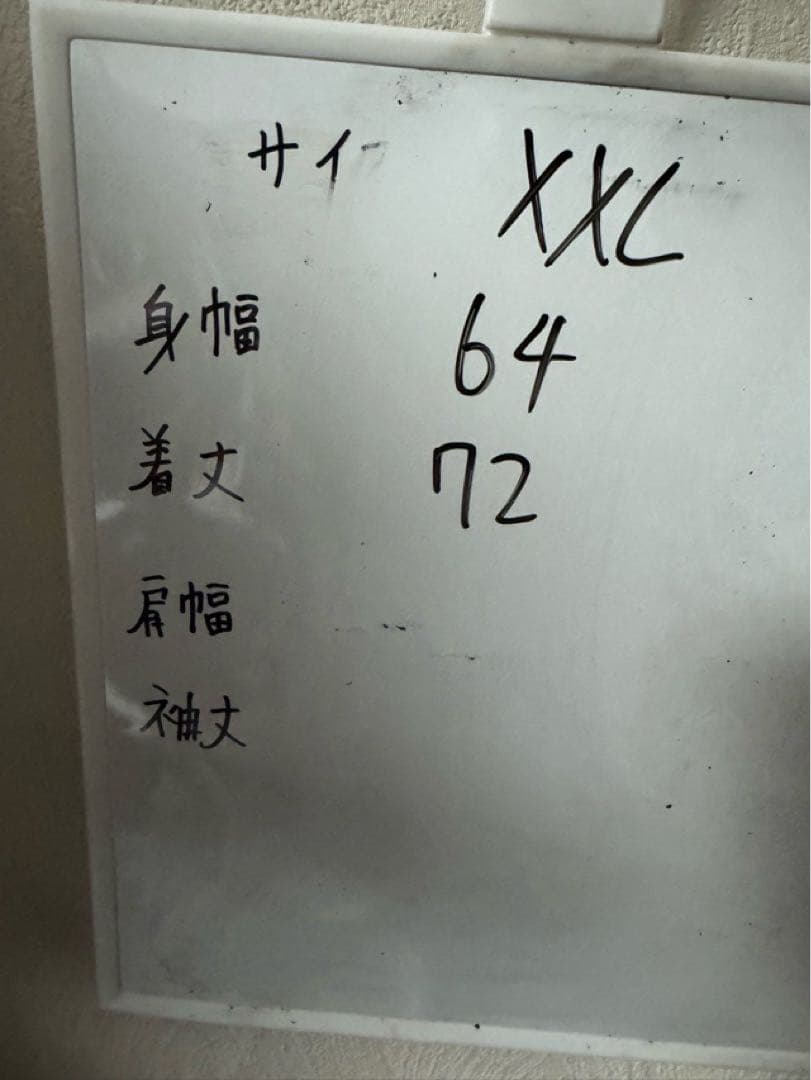 サイ XXL
身幅 64
着丈 72
肩幅
袖丈